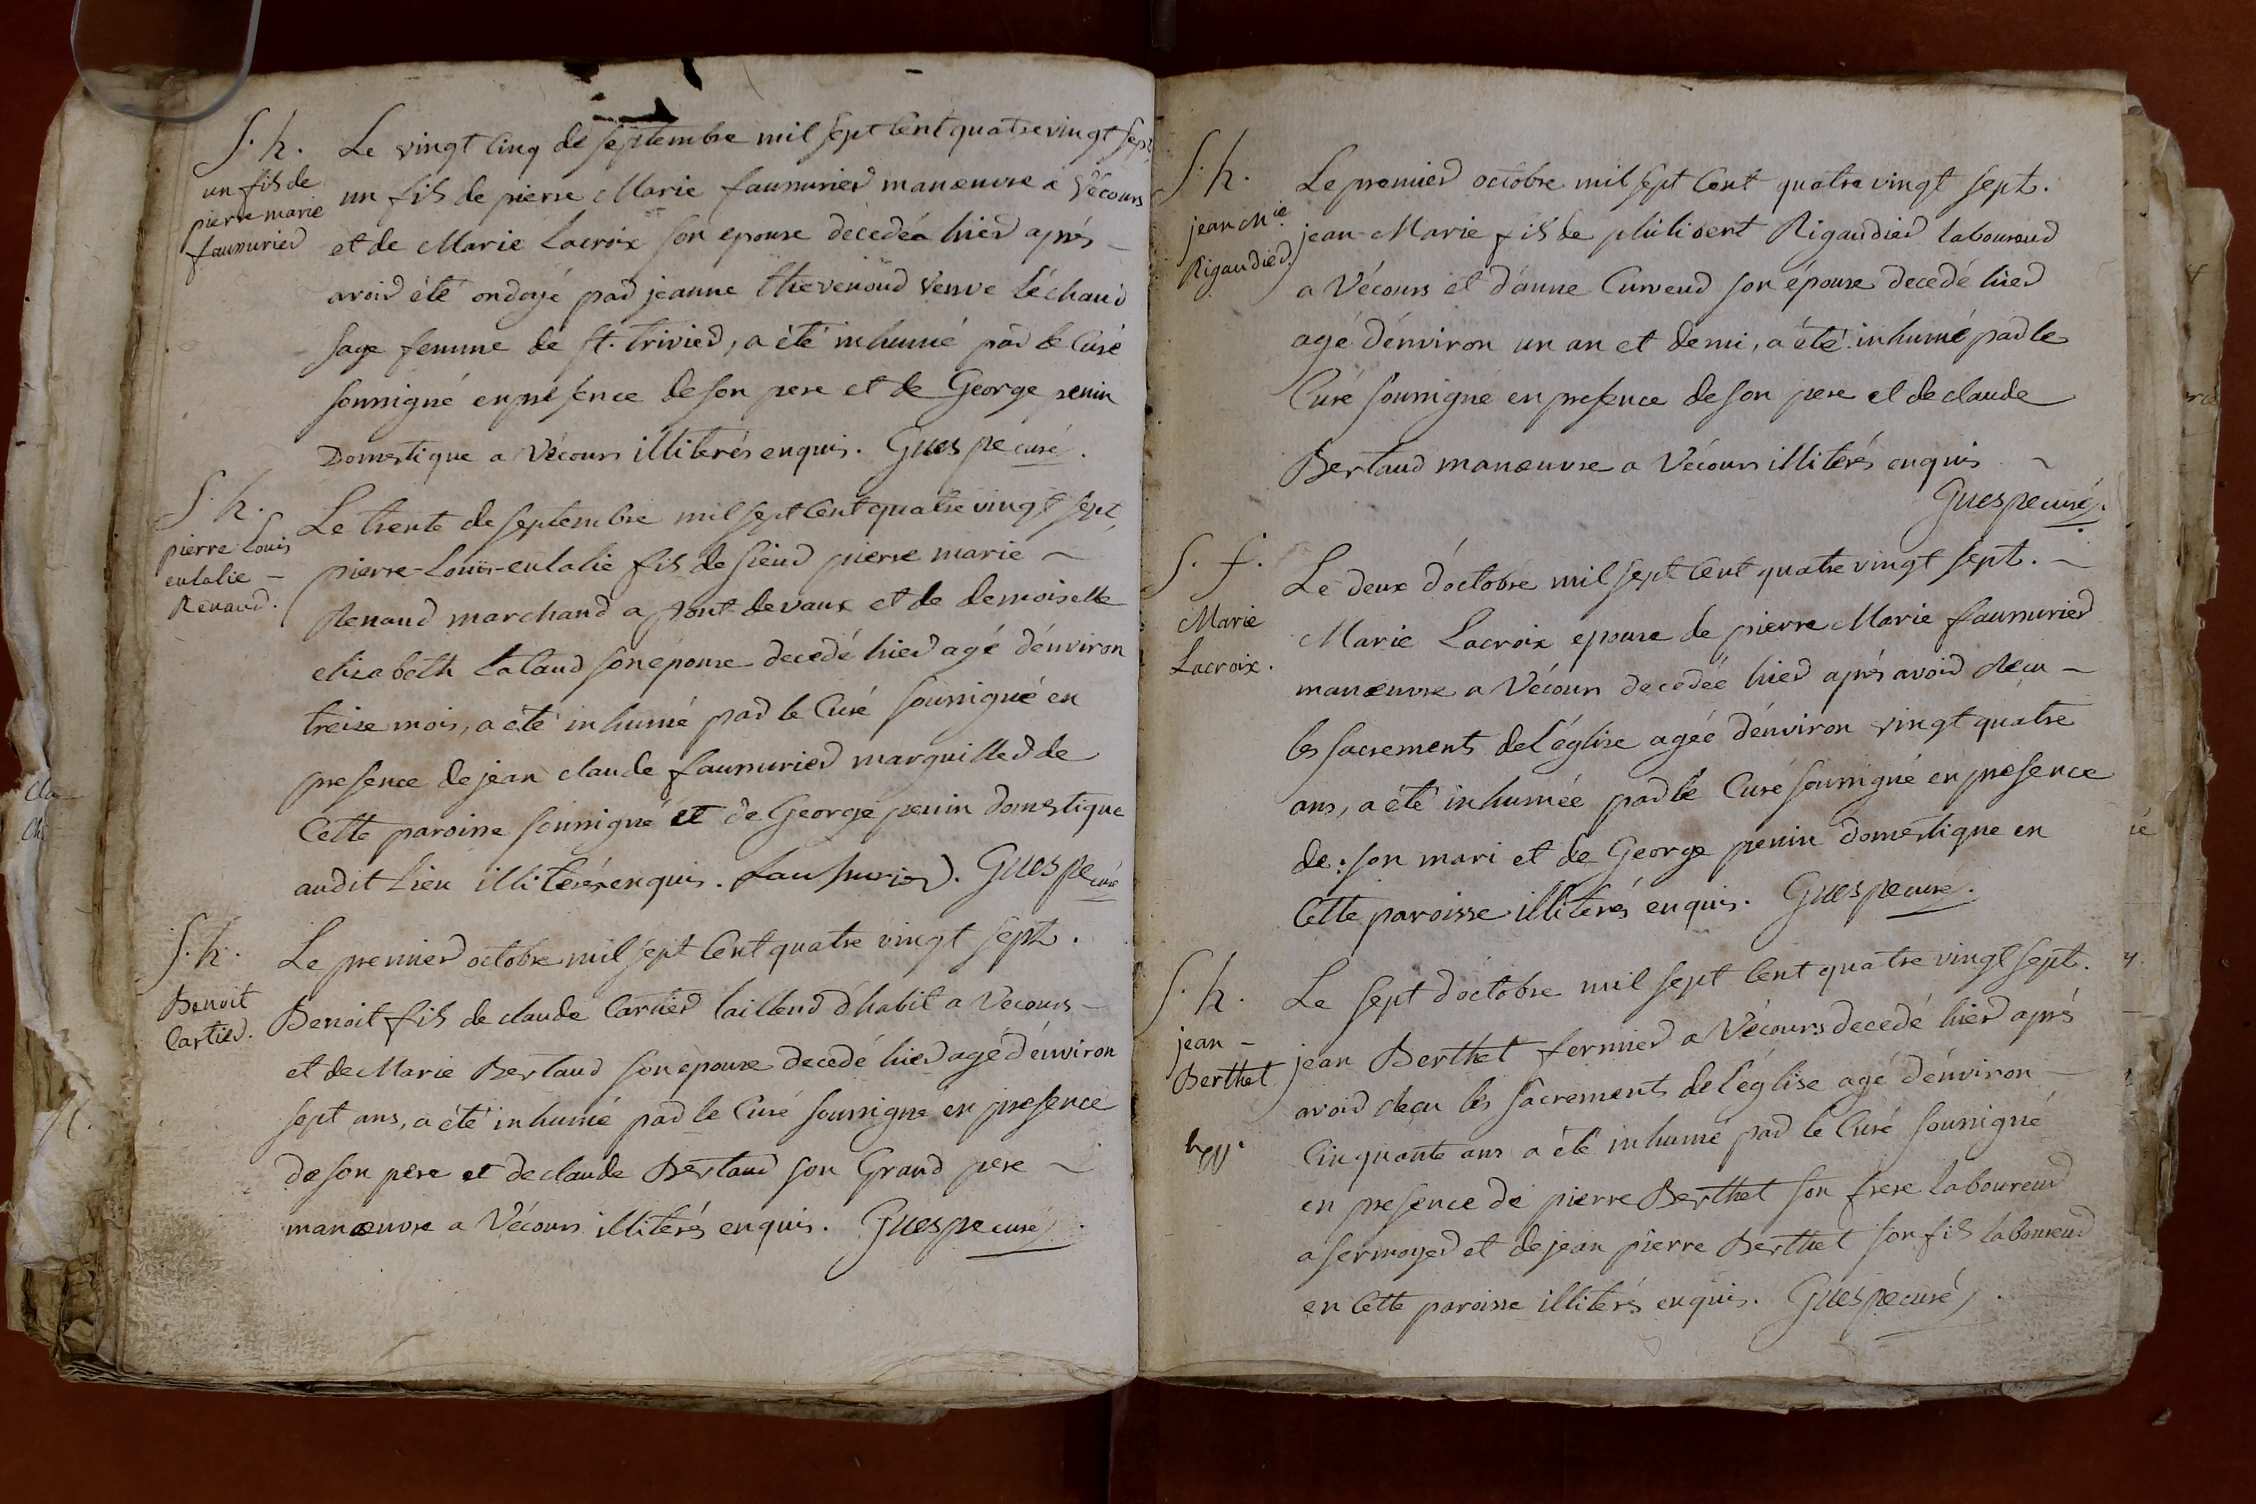 S. h.
un fils de
pierre marie
faussurier
Le vingt cinq de septembre mil sept cent quatre vingt sept
un fils de pierre Marie faussurier manœuvre a Vécours
et de Marie Lacroix son epouse décédé hier après
avoir été ondoyé par jeanne thevenoud veuve Léchaud
sage femme de st. trivier, a été inhumé par le Curé
soussigné en présence de son pere et de George penin
Domestique a Vécours illiterés enquis. Guespe curé.
S. h.
pierre Louis
eulalie
Renaud.
Le trente de septembre mil sept cent quatre vingt sept
pierre-Louis-eulalie fils de sieur pierre marie
Renaud marchand a pont-de vaux et de demoiselle
elizabeth Lataud son épouse decedé hier agé d'environ
treize mois, a été inhumé par le Curé soussigné en
presence de jean claude faussurier marguiller de
Cette paroisse soussigné et de George penin domestique
audit lieu illiterés enquis. faussurier. Guespe curé
S. h.
Benoit
Cartier.
Le premier octobre mil sept cent quatre vingt sept.
Benoit fils de claude Cartier tailleur d'habit a Vecours
et de Marie Bertaud son epouse decedé hier agé d'environ
sept ans, a été inhumé par le Curé soussigné en presence
de son pere et de claude Bertaud son Grand pere
manœuvre a Vécours illiterés enquis. Guespe curé
S. h.
jean Mie.
Rigaudier.
Le premier octobre mil sept cent quatre vingt sept.
jean-Marie fils de philibert Rigaudier laboureur
a Vécours et d'anne Curveur son épouse decedé hier
agé d'environ un an et demi, a été inhumé par le
Curé soussigné en presence de son pere et de claude
Bertaud manœuvre a Vécours illiterés enquis
Guespe curé.
S. f.
Marie
Lacroix.
Le deux d'octobre mil sept cent quatre vingt sept.
Marie Lacroix epouse de pierre Marie faussurier
manœuvre a Vécours decedée hier après avoir reçu
les sacrements de l'église agée d'environ vingt quatre
ans, a été inhumée par le Curé soussigné en presence
de son mari et de George penin domestique en
Cette paroisse illiterés enquis. Guespe curé.
S. h.
jean
Berthet
Le sept d'octobre mil sept cent quatre vingt sept.
jean Berthet fermier a Vécours decedé hier après
avoir reçu les sacrements de l'église agé d'environ
Cinquante ans a été inhumé par le Curé soussigné
en presence de pierre Berthet son frere laboureur
a sermoyer et de jean pierre Berthet son fils laboureur
en Cette paroisse illiterés enquis. Guespe curé.